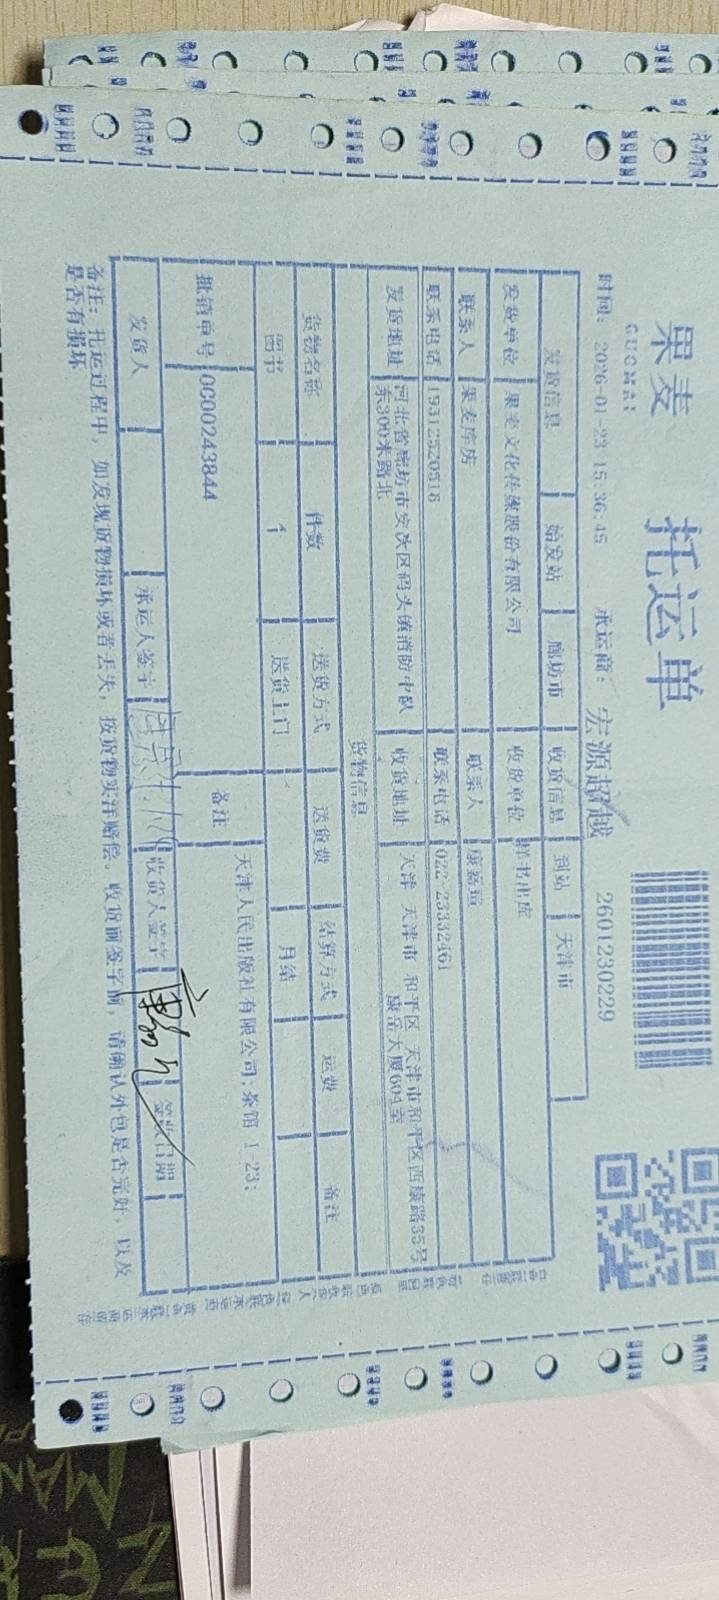 果麦
GUOMAI
托运单
时间: 2026-01-23 15:36:45 承运商: 宏源超越 2601230229
发货信息 始发站 廊坊市 收货信息 到站 天津市
发货单位 果麦文化传媒股份有限公司 收货单位 样书出库
联系人 果麦库房 联系人 康嘉瑄
联系电话 19312520518 联系电话 022-23332461
发货地址 河北省廊坊市安次区码头镇消防中队 收货地址 天津 天津市 和平区 天津市和平区西康路35号
东300米路北 康岳大厦604室
货物信息
货物名称 件数 送货方式 送货费 结算方式 运费 备注
图书 1 送货上门 月结
批销单号 0C00243844 备注 天津人民出版社有限公司;茶馆 1-23;
发货人 承运人签字 收货人签字 签收日期
备注: 托运过程中, 如发现货物损坏或者丢失, 按货物实洋赔偿。收货前签字前, 请确认外包是否完好, 以及
是否有损坏